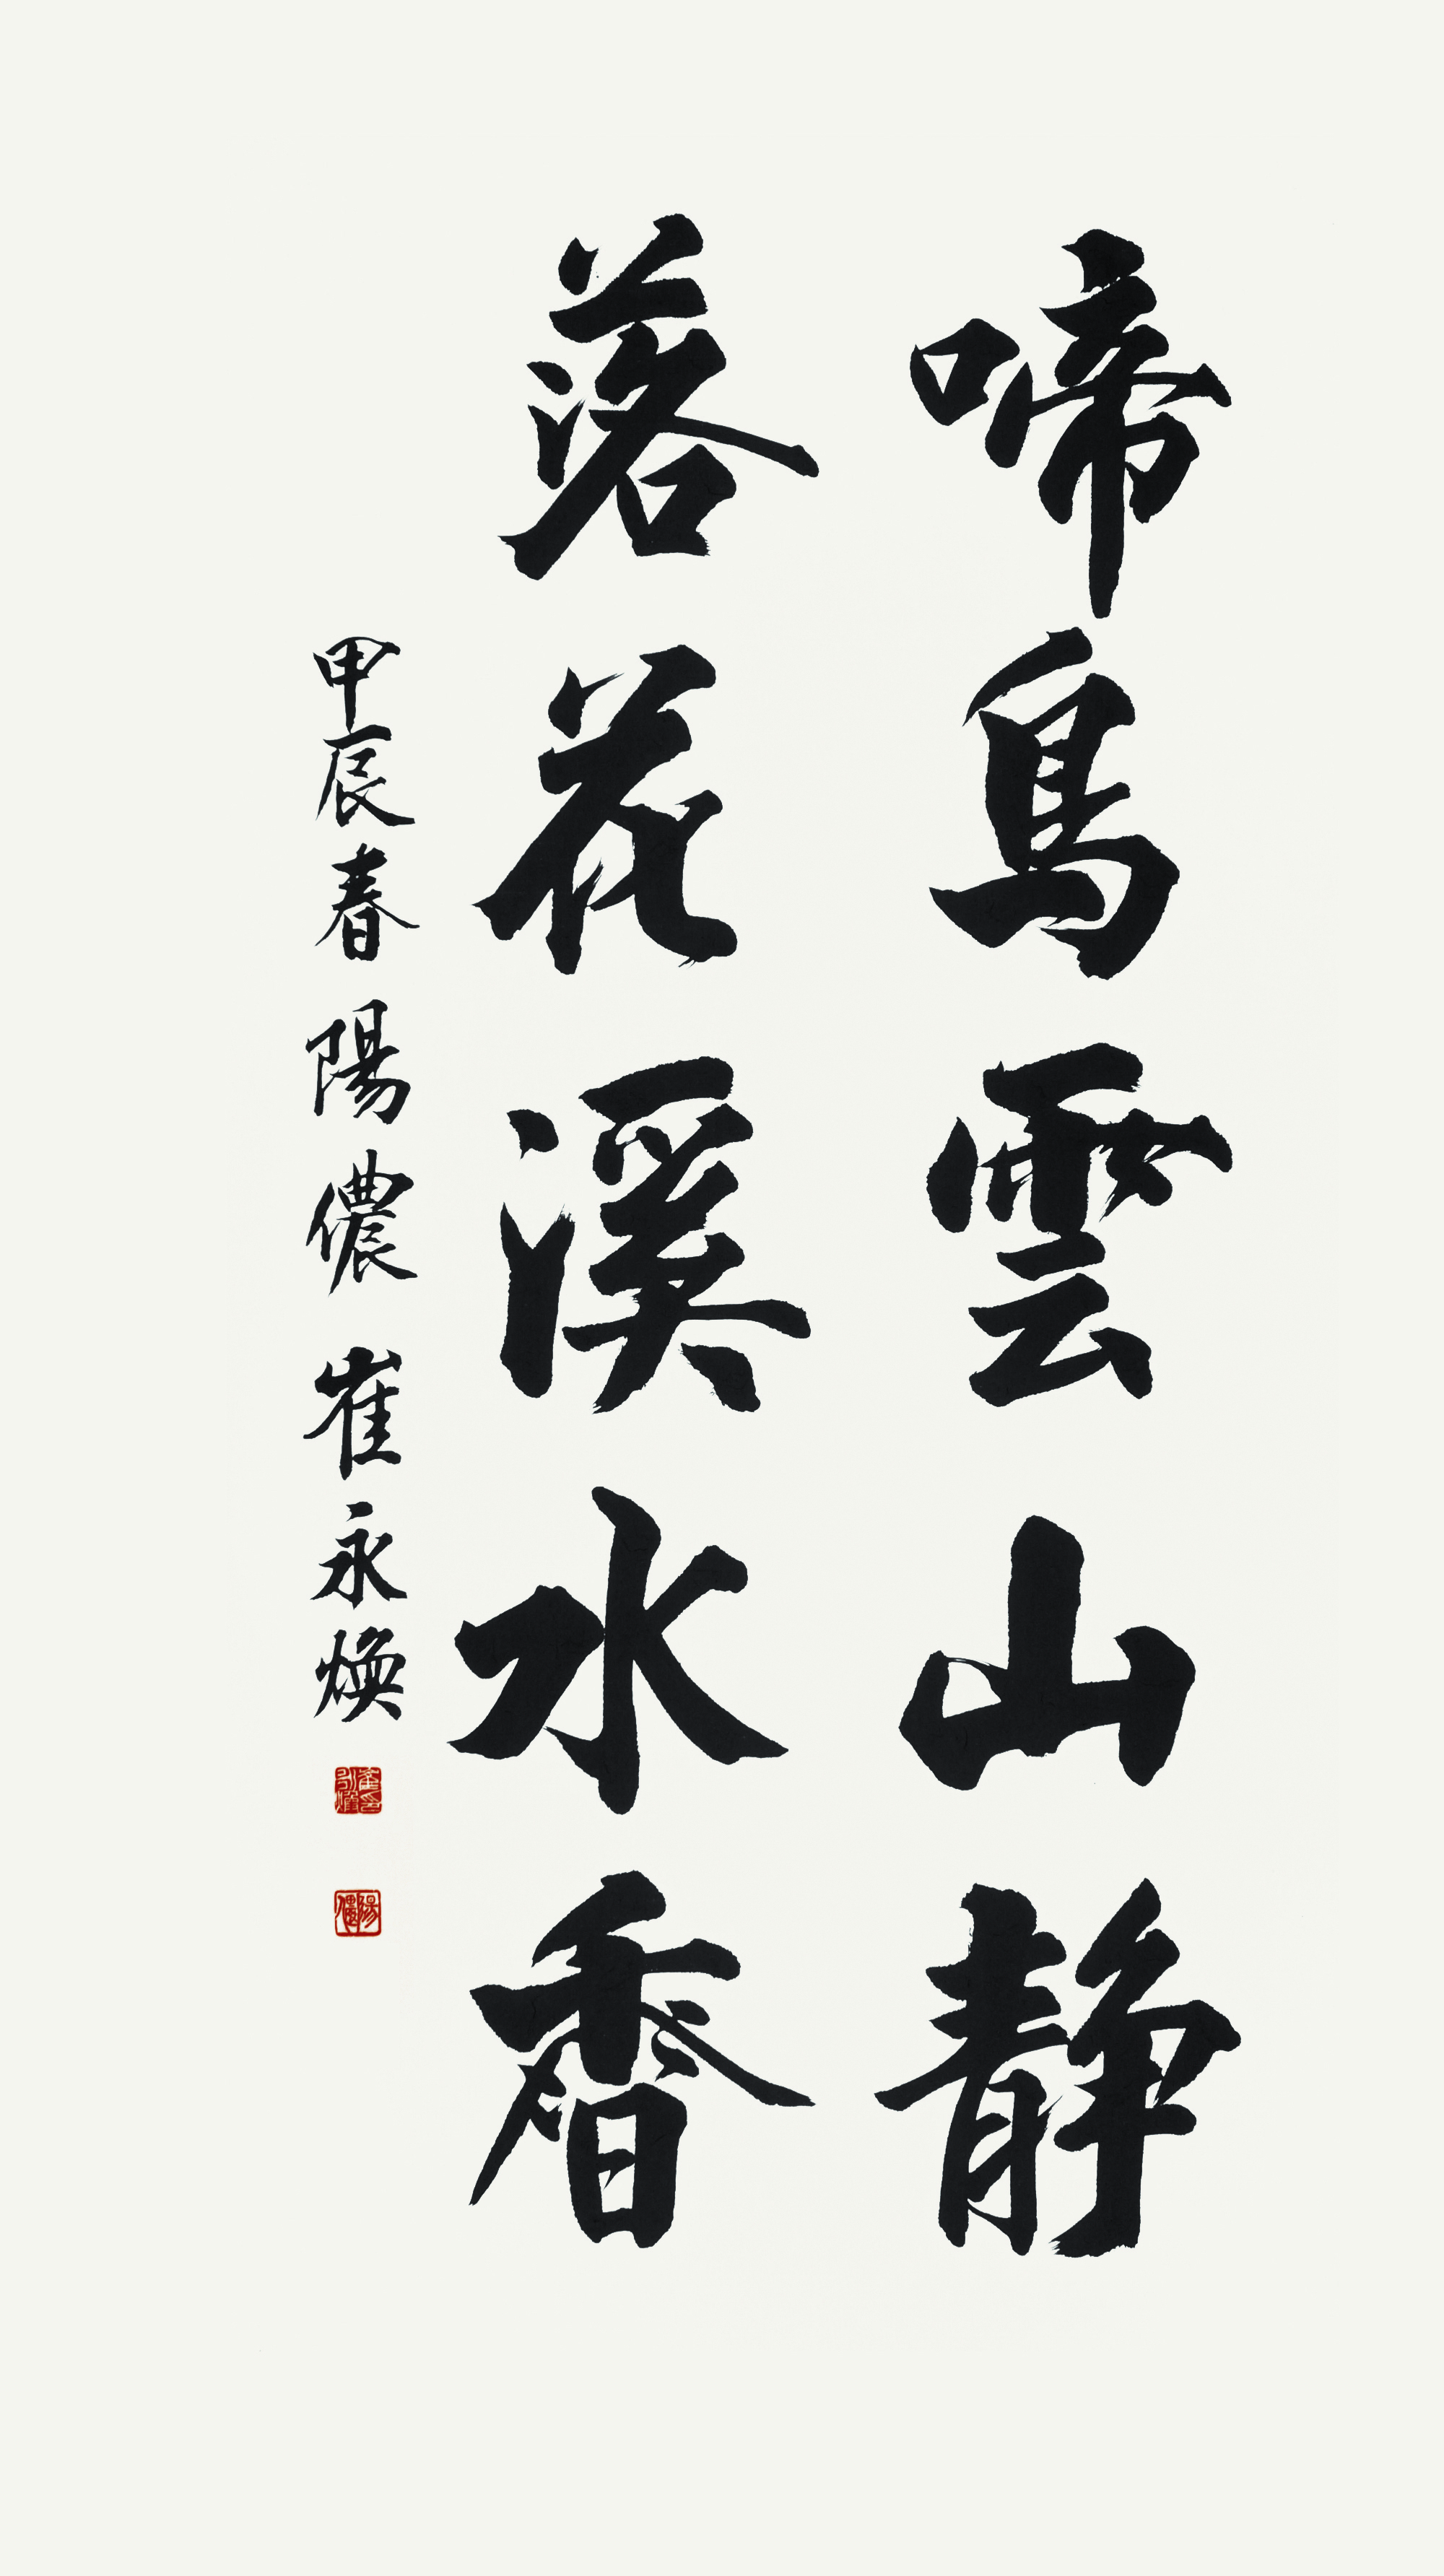 啼鳥雲山静
落花溪水香
甲辰春 陽儂 崔永煥